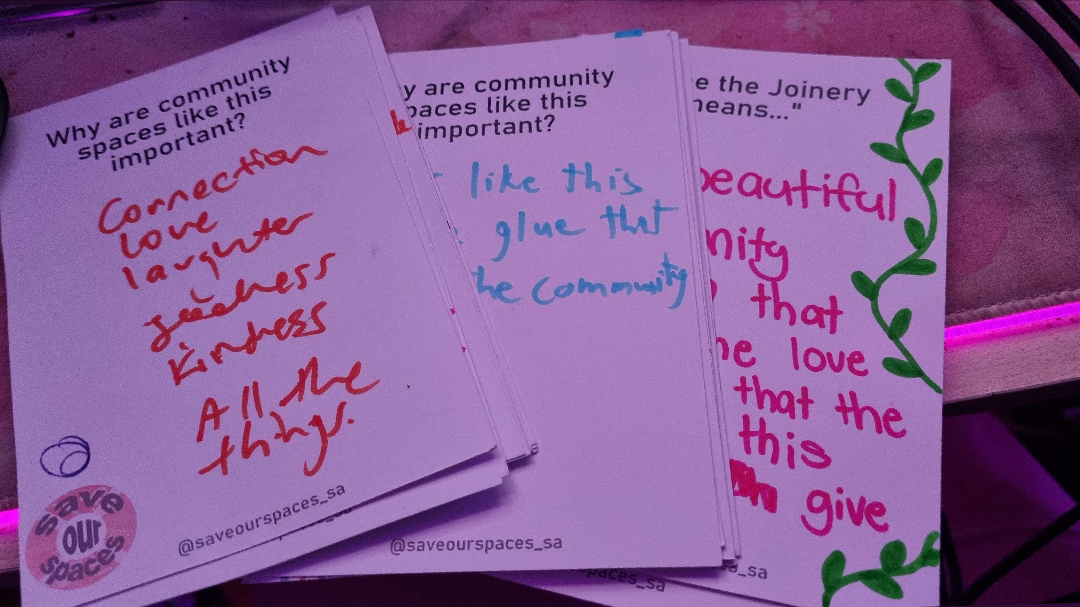 Why are community
spaces like this
important?
Connection
love
laughter
kindness
All the
things.
save
our
spaces
@saveourspaces_sa
y are community
paces like this
important?
like this
glue that
he community
@saveourspaces_sa
e the Joinery
means..."
beautiful
nity
that
he love
that the
this
give
spaces_sa
s_sa